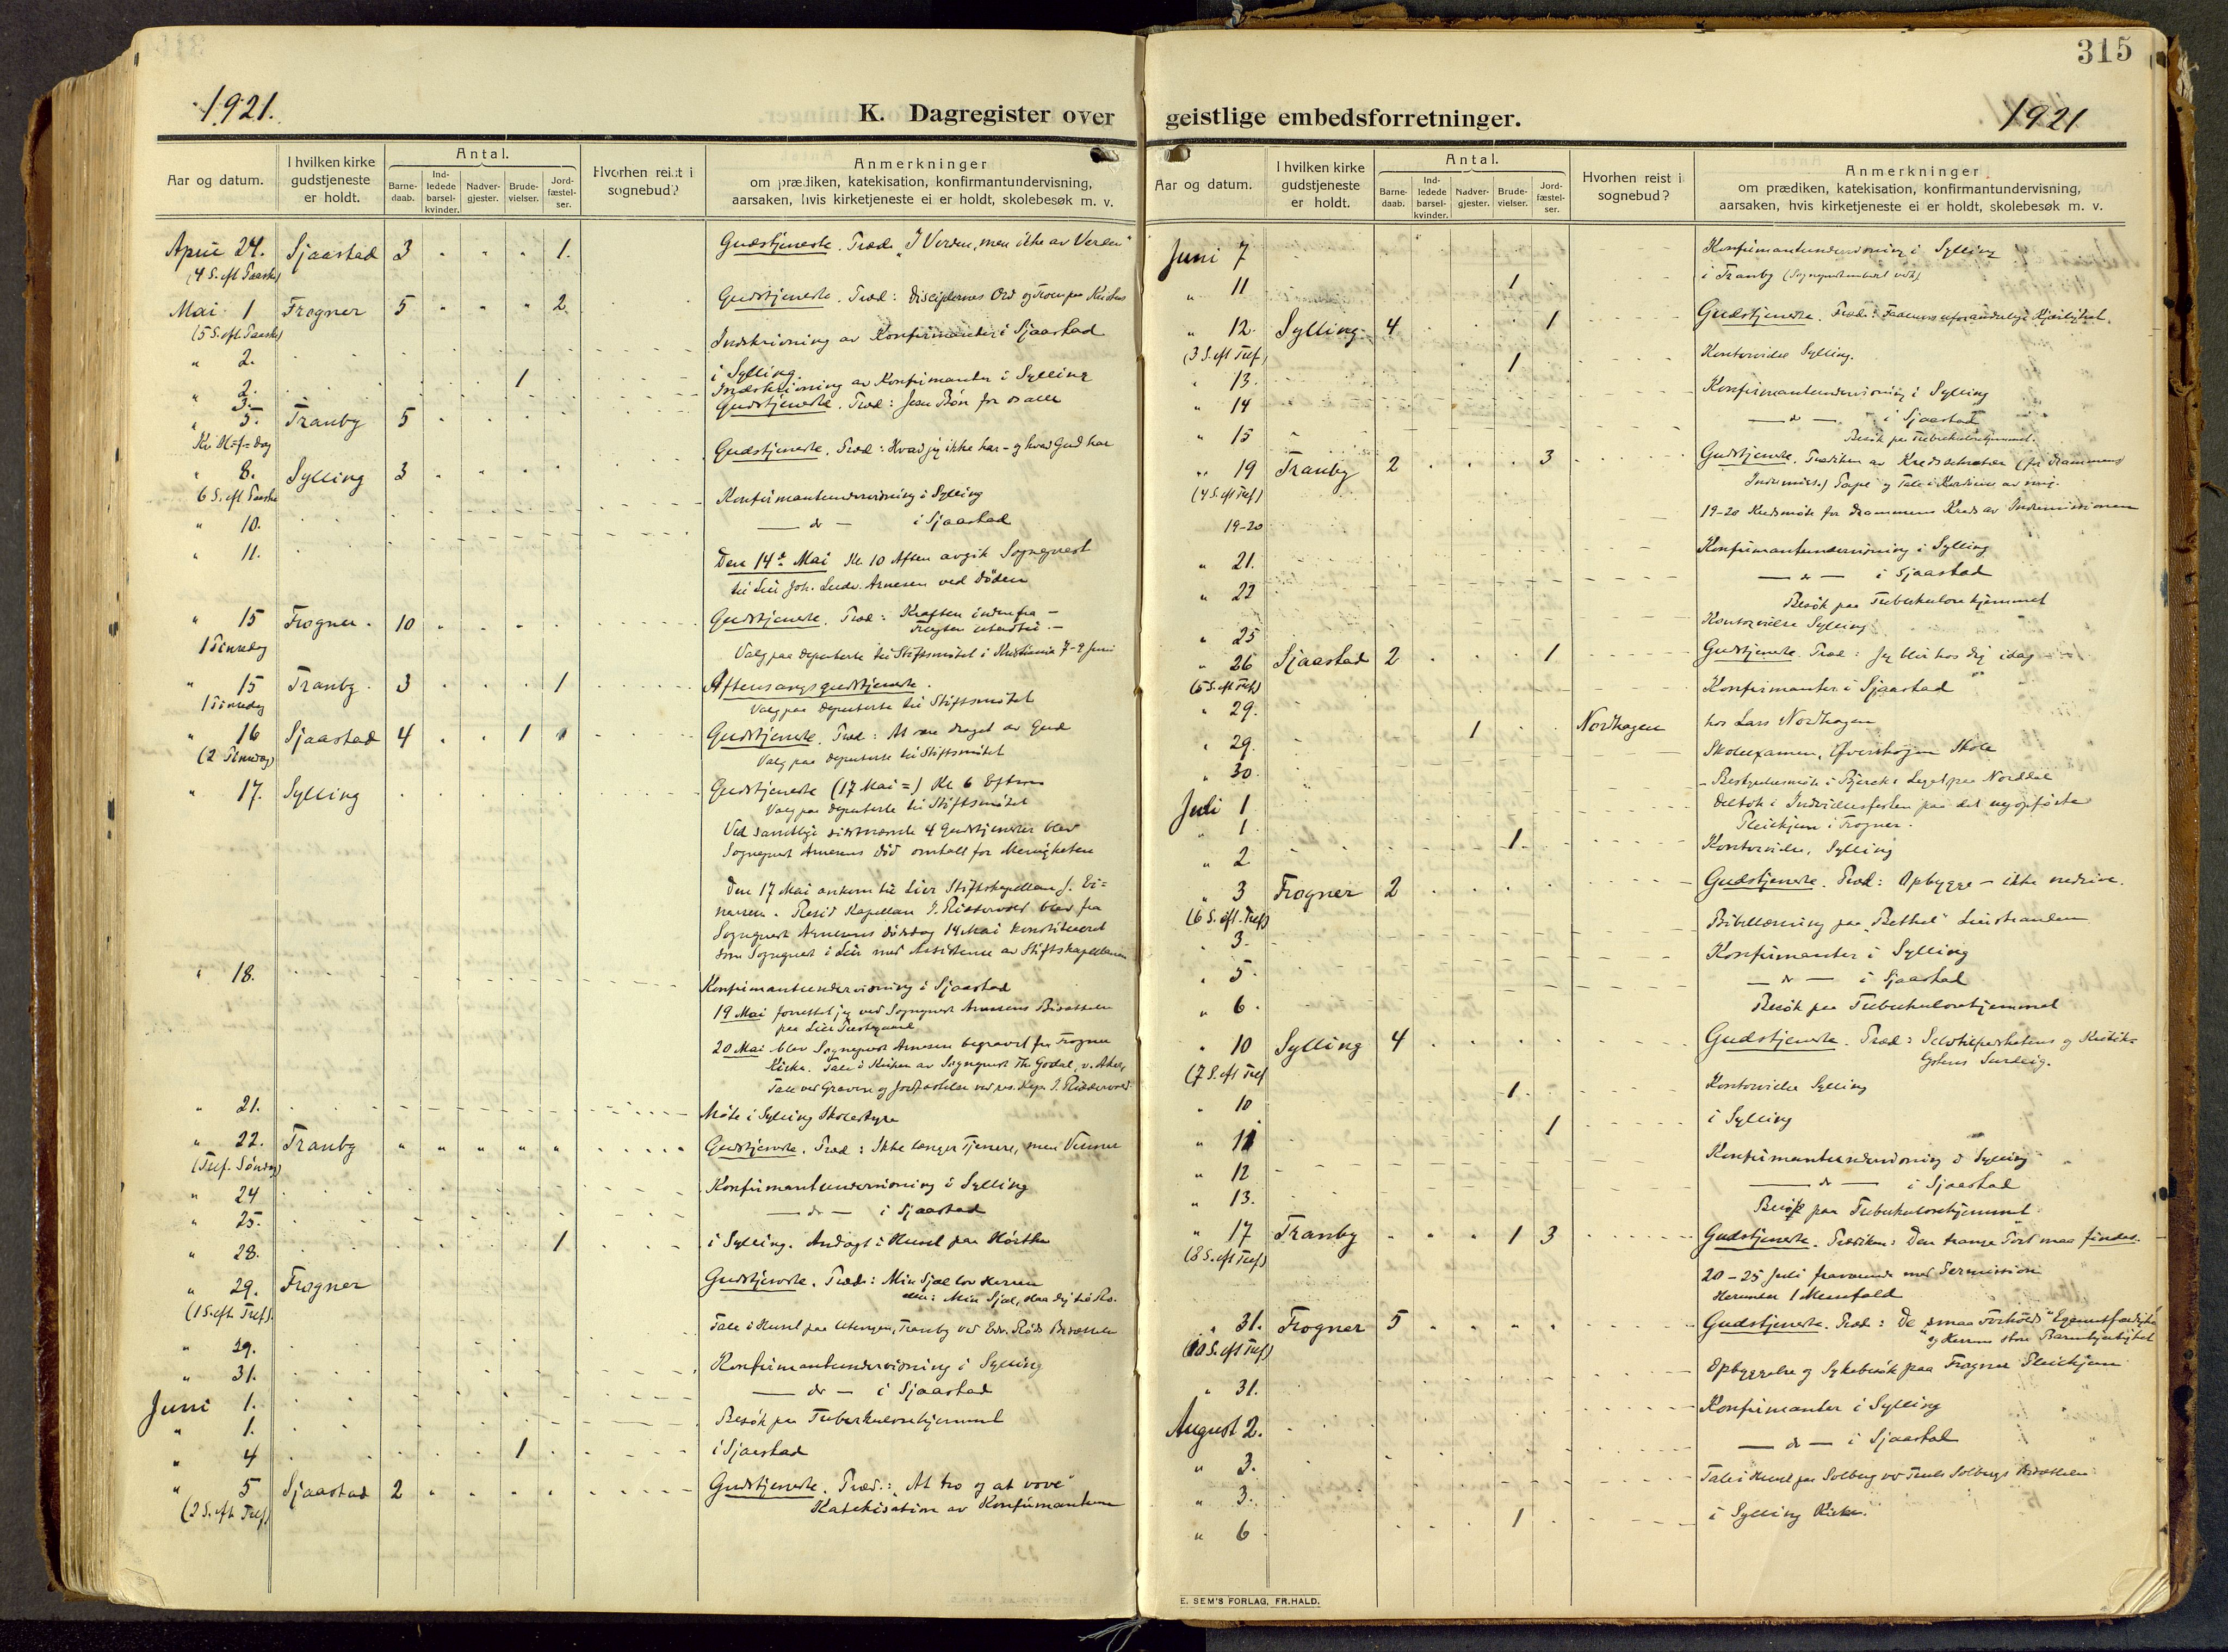 315
1921.
K. Dagregister over geistlige embedsforretninger.
1921
Aar og datum.
I hvilken kirke gudstjeneste er holdt.
Antal.
Barne-daab.
Ind-ledede barsel-kvinder.
Nadver-gjester.
Brude-vielser.
Jord-fæstel-ser.
Hvorhen reist i sognebud?
Anmerkninger
om prædiken, katekisation, konfirmantundervisning,
aarsaken, hvis kirketjeneste ei er holdt, skolebesøk m. v.
April 24. Sjaastad 3 " " " 1. Gudstjeneste. Præd. "I Verden, men ikke av Verden"
(4 S. eft Paaske)
Mai 1 Frogner 5 " " " 2 Gudstjeneste. Præd: Disciplernes Ord og Troen paa Kristus
(5 S. eft. Paaske)
" 2. Indskrivning av Konfirmanter i Sjaastad
" 2. 1 i Sylling
3. Indskrivning av Konfirmanter i Sylling
" 5. Tranby 5 Gudstjeneste. Præd: Jesu Bøn for os alle
Kr H=f=dag
" 8. Sylling 3 Gudstjeneste. Præd: Hvad jeg ikke har - og hvad Gud har
6 S. eft Paaske
" 10. Konfirmantundervisning i Sylling
" 11. — do — i Sjaastad
Den 14de Mai Kl. 10 Aften avgik Sogneprest
til Lier Joh. Ludv. Arnesen ved Døden
" 15 Frogner. 10 Gudstjeneste. Præd: Kraften indenfra -
1 Pinsedag
Valg paa Deputerte til Stiftsmøtet i Kristiania 7-9 Juni
" 15 Tranby. 3 1 Aftensangsgudstjeneste.
1 Pinsedag Valg paa Deputerte til Stiftsmøtet
" 16 Sjaastad 4 1 Gudstjeneste. Præd: At være draget av Gud
(2 Pinsedag) Valg paa Deputerte til Stiftsmøtet
" 17. Sylling Gudstjeneste (17 Mai =) Kl. 6 Efterm
Valg paa Deputerte til Stiftsmøtet
Ved samtlige sidstnævnte 4 Gudstjenester blev
Sogneprest Arnesens Død omtalt for Menigheten
Den 17 Mai ankom til Lier Stiftskapellan J. Ei=
narsen. Resid Kapellan J. Riddervold blev fra
Sogneprest Arnesens Dødsdag 14 Mai konstitueret
som Sogneprest i Lier med Assistense av Stiftskapellanen
" 18. Konfirmantundervisning i Sjaastad
19 Mai forrettet jeg ved Sogneprest Arnesens Bisættelse
paa Lier Prestegaard
20 Mai blev Sogneprest Arnesen begravet fra Frogner
Kirke. Tale i Kirken av Sogneprest Th. Godal, v. Aker,
Tale ved Graven og Jordfæstelse ved res. Kap. J. Riddervold
" 21. Møte i Sylling Skolestyre
" 22. Tranby " " " " " Gudstjeneste. Præd: Ikke længer Tjenere, men Venner
(Tref. Søndag)
" 24 Konfirmantundervisning i Sylling
" 25. — do — i Sjaastad
" 28. 1 i Sylling. Andagt i Huset paa Hørthe
" 29. Frogner Gudstjeneste. Præd: Min Sjæl lov Herren
(1 S. eft. Tref). eller: Min Sjæl, slaa dig til Ro.
" 29. Tale i Huset paa Utengen, Tranby ved Edv. Røds Bisættelse
" 31. Konfirmantundervisning i Sylling
Juni 1. — do — i Sjaastad
" 1. Besøk paa Tuberkulosehjemmet
" 4 1 i Sjaastad
" 5 Sjaastad 2 Gudstjeneste. Præd.: "At tro og at vove"
(2 S. eft Tref) Katekisation av Konfirmantene
Aar og datum.
I hvilken kirke gudstjeneste er holdt.
Antal.
Barne-daab.
Ind-ledede barsel-kvinder.
Nadver-gjester.
Brude-vielser.
Jord-fæstel-ser.
Hvorhen reist i sognebud?
Anmerkninger
om prædiken, katekisation, konfirmantundervisning,
aarsaken, hvis kirketjeneste ei er holdt, skolebesøk m. v.
Juni 7 Konfirmantundervisning i Sylling
" 11 1 i Tranby
" 12. Sylling 4 1 Gudstjeneste. Præd: Faderens uforanderlige Kjærlighet.
(3 S. eft Tref)
" 13. 1 Kontorvielse Sylling.
" 14 Konfirmantundervisning i Sylling
" 15 — do — i Sjaastad
Besøk paa Tuberkulosehjemmet.
" 19 Tranby 2 3 Gudstjeneste. Prædiken av Kredssekretær (for Drammens
(4 S. eft Tref) Indremiss.)
19-20 19-20 Kredsmøte for Drammens Kreds av Indremissionen
" 21. Konfirmantundervisning i Sylling
" 22 — do — i Sjaastad
Besøk paa Tuberkulosehjemmet
" 25 Kontorvielse Sylling
" 26 Sjaastad 2 1 Gudstjeneste. Præd: Jeg blir hos dig idag
(5 S. eft Tref)
" 29. Konfirmanter i Sjaastad
" 29. 1 Nordhagen hos Lars Nordhagen
" 30. Skoleexamen, Øvershagen Skole
Juli 1 - Bestyrelsesmøte i Bjercks Legat paa Norddal
" 1. Deltok i Indvielsesfesten paa det nyopførte
Pleiehjem i Frogner.
" 2 1 Kontorvielse, Sylling
" 3 Frogner 2 Gudstjeneste. Præd: Opbygge - ikke nedrive.
(6 S. eft. Tref)
" 3. Bibellæsning paa "Bethel" Lierstranden
" 5. Konfirmanter i Sylling
" 6. — do — i Sjaastad
Besøk paa Tuberkulosehjemmet
" 10 Sylling 4 Gudstjeneste. Præd: Selvtilfredshetens og Kritik-
(7 S. eft Tref Surdeig.
" 10 1 Kontorvielse Sylling
" 11 1 i Sylling
" 12 Konfirmantundervisning i Sylling
" 13. — do — i Sjaastad
Besøk paa Tuberkulosehjemmet
" 17 Tranby 1 3 Gudstjeneste. Prædiken: Den trange Port maa findes.
(8 S. eft Tref)
20-25 Juli fraværende med Permission
Herunder 1 Messefald
" 31. Frogner 5 Gudstjeneste. Præd: De smaa Forhold
(10 S. eft Tref) og Herrens store Barmhjertighet
" 31. Opbyggelse og Sykebesøk paa Frogner Pleiehjem
August 2. Konfirmanter i Sylling
" 3. — do — i Sjaastad
" 3. Tale i Huset paa Solberg ved Solbergs Bisættelse
" 6 1 i Sylling Kirke.
E. SEM'S FORLAG, FR.HALD.